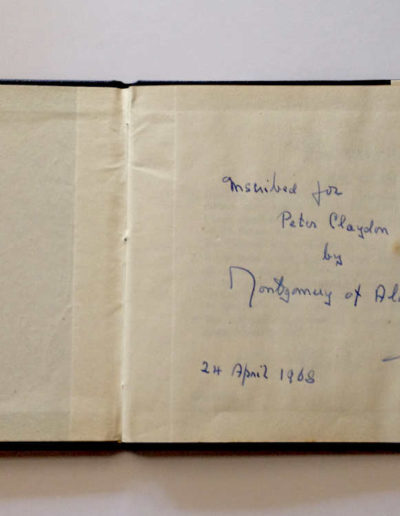 Inscribed for
Peter Claydon
by
Montgomery of Ala
24 April 1968